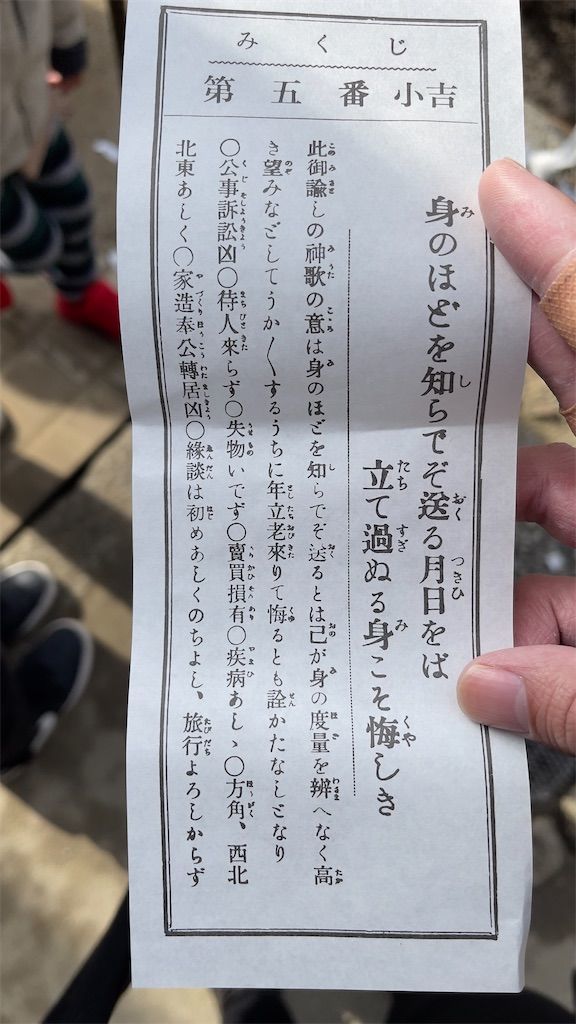 みくじ
第五番 小吉
身のほどを知らでぞ送る月日をば
立て過ぬる身こそ悔しき
此御諭しの神歌の意は身のほどを知らでぞ送るとは己が身の度量を辨へなく高
き望みなどしてうか〳〵するうちに年立老來りて悔るとも詮かたなしとなり
〇公事訴訟凶〇待人來らず〇失物いでず〇賣買損有〇疾病あしゝ〇方角、西北
北東あしく〇家造奉公轉居凶〇緣談は初めあしくのちよし、旅行よろしからず